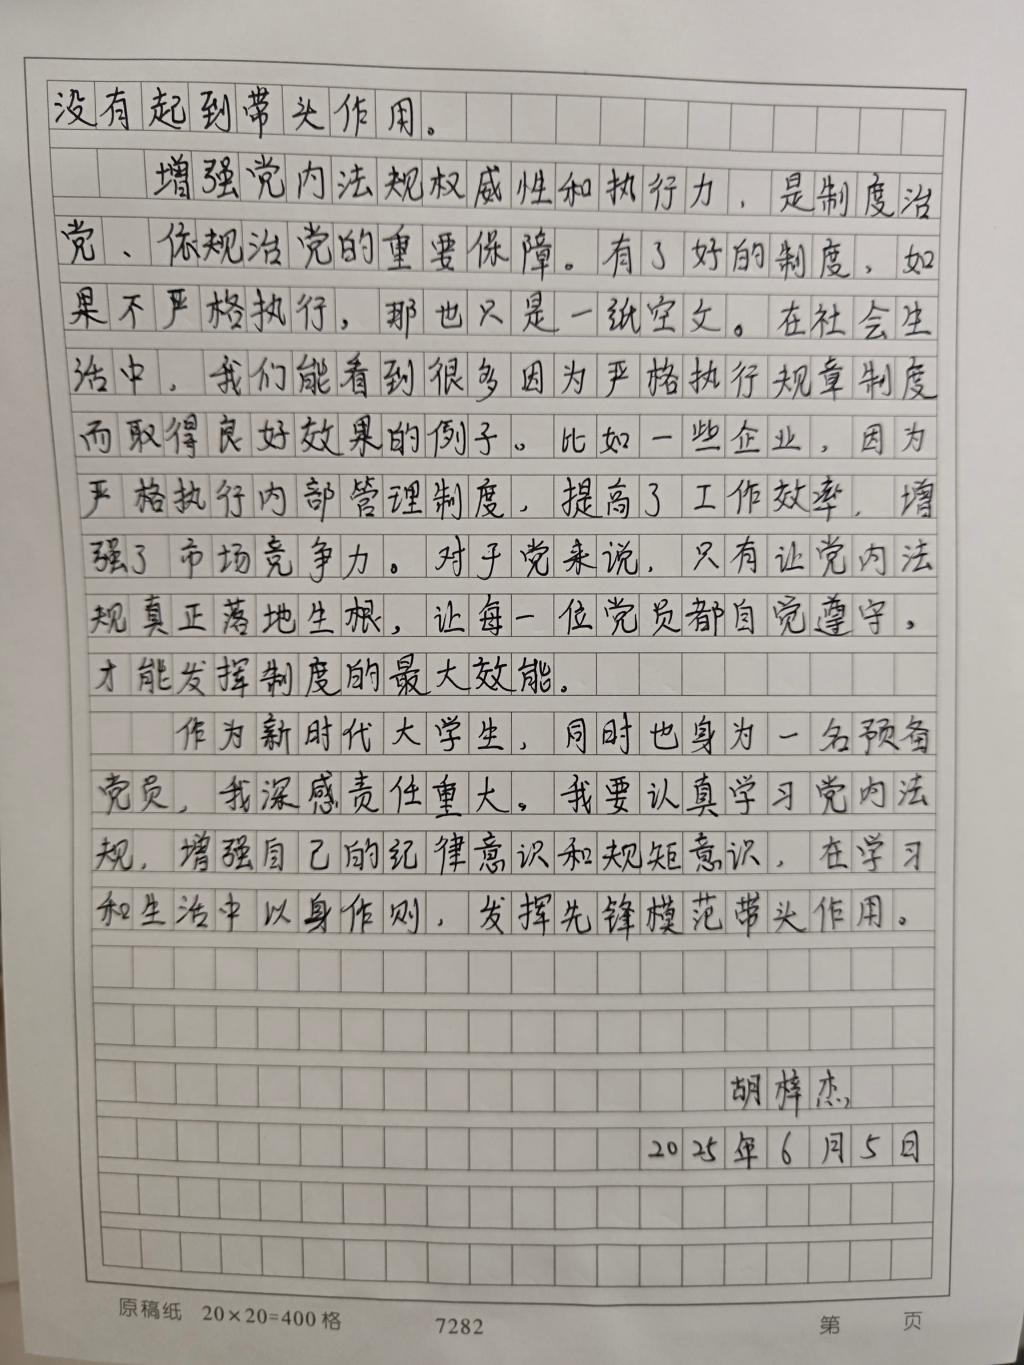 没有起到带头作用。
增强党内法规权威性和执行力，是制度治
党、依规治党的重要保障。有了好的制度，如
果不严格执行，那也只是一纸空文。在社会生
活中，我们能看到很多因为严格执行规章制度
而取得良好效果的例子。比如一些企业，因为
严格执行内部管理制度，提高了工作效率，增
强了市场竞争力。对于党来说，只有让党内法
规真正落地生根，让每一位党员都自觉遵守，
才能发挥制度的最大效能。
作为新时代大学生，同时也身为一名预备
党员，我深感责任重大。我要认真学习党内法
规，增强自己的纪律意识和规矩意识，在学习
和生活中以身作则，发挥先锋模范带头作用。
胡梓杰
2025年6月5日
原稿纸 20×20=400格 7282 第 页